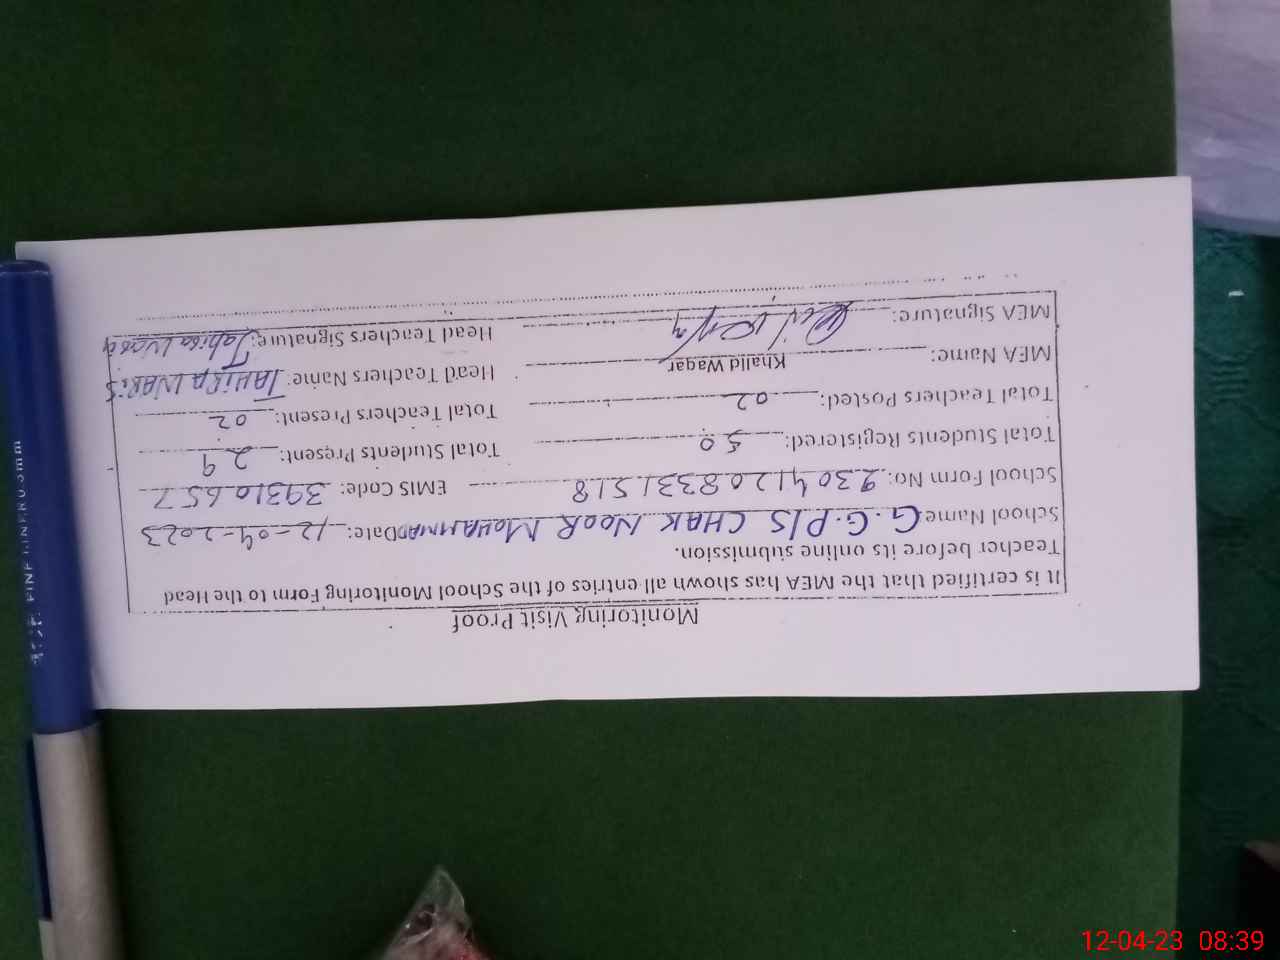 Monitoring Visit Proof
It is certified that the MEA has shown all entries of the School Monitoring Form to the Head
Teacher before its online submission.
School Name G.G.P/S CHAK NOOR MOHAMMAD Date: 12-04-2023
School Form No: 93041208331518 EMIS Code: 39310657
Total Students Registered: 50 Total Students Present: 29
Total Teachers Posted: 02 Total Teachers Present: 02
MEA Name: Khalid Waqar Head Teachers Name: TAHIRA WARIS
MEA Signature: Head Teachers Signature: Tahira Waris
12-04-23 08:39